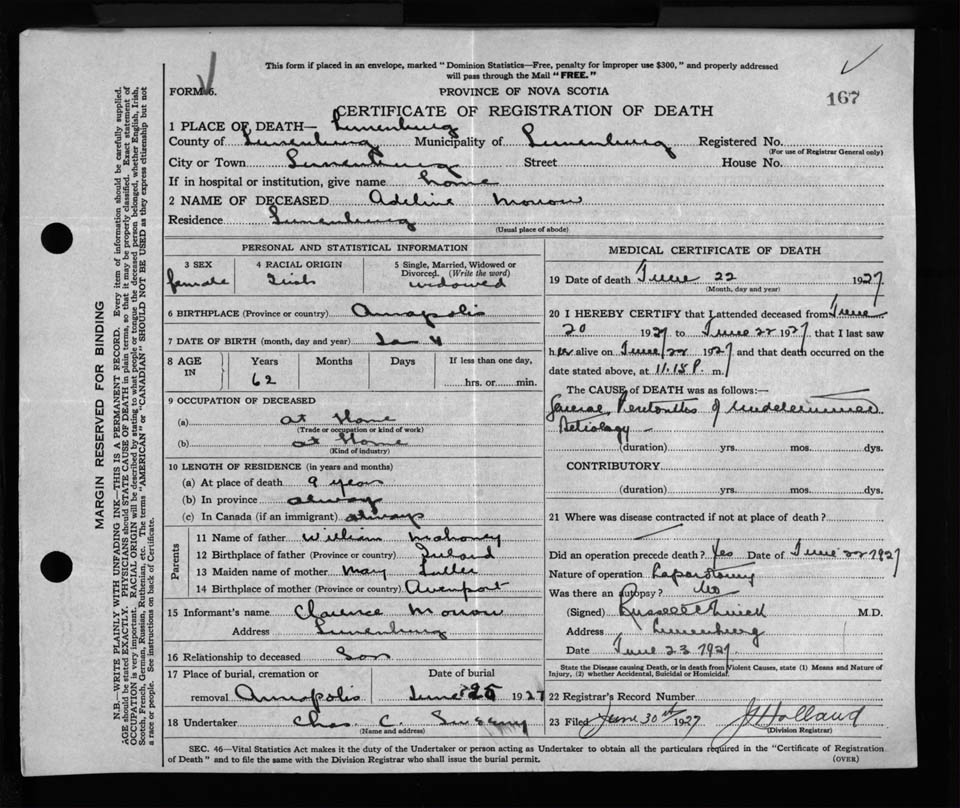 This form if placed in an envelope, marked "Dominion Statistics—Free, penalty for improper use $300," and properly addressed
will pass through the Mail "FREE."
FORM 6.
PROVINCE OF NOVA SCOTIA
167
CERTIFICATE OF REGISTRATION OF DEATH
1 PLACE OF DEATH— Lunenburg
County of Lunenburg Municipality of Lunenburg Registered No.
(For use of Registrar General only)
City or Town Lunenburg Street House No.
If in hospital or institution, give name home
2 NAME OF DECEASED Adeline Morrow
Residence Lunenburg
(Usual place of abode)
PERSONAL AND STATISTICAL INFORMATION
3 SEX 4 RACIAL ORIGIN 5 Single, Married, Widowed or
Divorced. (Write the word)
female Irish widowed
6 BIRTHPLACE (Province or country) Annapolis
7 DATE OF BIRTH (month, day and year)
8 AGE IN Years Months Days If less than one day,
62 hrs. or min.
9 OCCUPATION OF DECEASED
(a) at Home
(Trade or occupation or kind of work)
(b) at Home
(Kind of industry)
10 LENGTH OF RESIDENCE (in years and months)
(a) At place of death 9 years
(b) In province always
(c) In Canada (if an immigrant) always
Parents
11 Name of father William Mahoney
12 Birthplace of father (Province or country) Ireland
13 Maiden name of mother May
14 Birthplace of mother (Province or country)
15 Informant's name Clarence Morrow
Address Lunenburg
16 Relationship to deceased Son
17 Place of burial, cremation or Date of burial
removal Annapolis June 25 1927
18 Undertaker Chas. C. Sweeny
(Name and address)
MEDICAL CERTIFICATE OF DEATH
19 Date of death June 22 1927
(Month, day and year)
20 I HEREBY CERTIFY that I attended deceased from June
20 1927 to June 22 1927 that I last saw
her alive on June 22 1927 and that death occurred on the
date stated above, at 11.15 P. m.
The CAUSE of DEATH was as follows:—
General Peritonitis of Undetermined
Aetiology
(duration) yrs. mos. dys.
CONTRIBUTORY
(duration) yrs. mos. dys.
21 Where was disease contracted if not at place of death?
Did an operation precede death? Yes Date of June 22 1927
Nature of operation Laparotomy
Was there an autopsy? No
(Signed) M.D.
Address Lunenburg
Date June 23 1927
State the Disease causing Death, or in death from Violent Causes, state (1) Means and Nature of
Injury, (2) whether Accidental, Suicidal or Homicidal.
22 Registrar's Record Number
23 Filed June 30th 1927 J Holland
(Division Registrar)
SEC. 46—Vital Statistics Act makes it the duty of the Undertaker or person acting as Undertaker to obtain all the particulars required in the "Certificate of Registration
of Death" and to file the same with the Division Registrar who shall issue the burial permit.
(OVER)
MARGIN RESERVED FOR BINDING
N.B.—WRITE PLAINLY WITH UNFADING INK—THIS IS A PERMANENT RECORD. Every item of information should be carefully supplied.
AGE should be stated EXACTLY. PHYSICIANS should STATE CAUSE OF DEATH in plain terms, so that it may be properly classified. Exact statement of
OCCUPATION is very important. RACIAL ORIGIN will be described by stating to what people or tongue the deceased person belonged, whether English, Irish,
Scotch, French, German, Russian, Ruthenian, etc. The terms "AMERICAN" or "CANADIAN" SHOULD NOT BE USED as they express citizenship but not
a race or people. See instructions on back of Certificate.